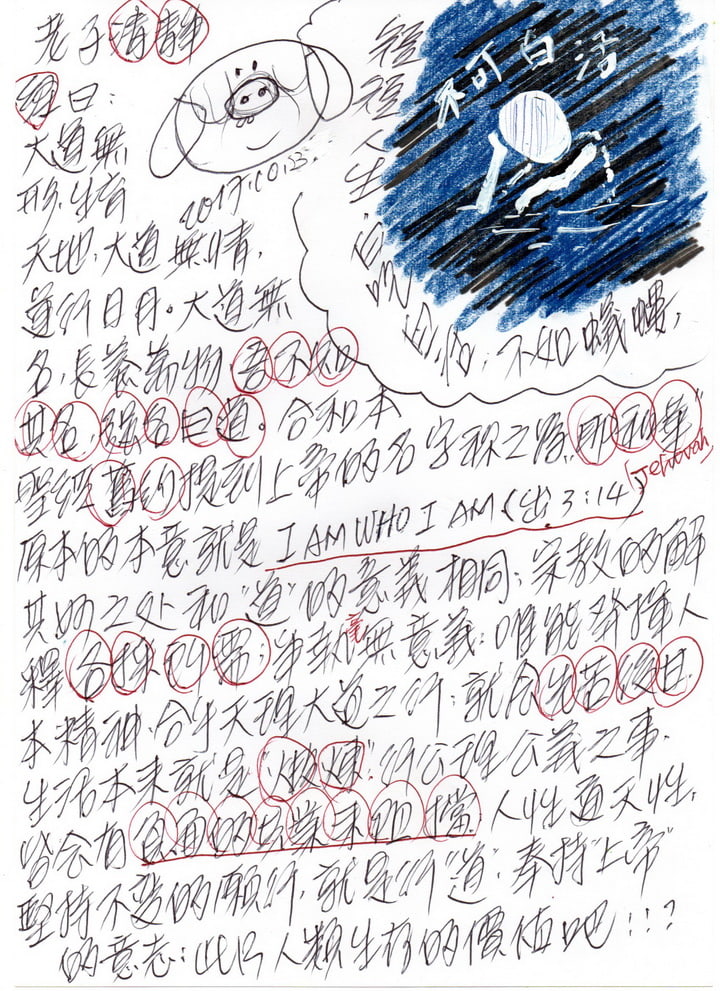 老子清靜
經曰:
大道無
形,生育
天地,大道無情,
運行日月。大道無
名,長養萬物,吾不知
其名,強名曰道。合和本
聖經舊約提到上帝的名字稱之謂"耶和華"
Jehovah
原本的本意就是 I AM WHO I AM (出 3:14)
其妙之处和"道"的意義相同;宗教的解
釋各採所需;爭執毫無意義;唯能發揮人
本精神,合乎天理大道之行;就会先苦後甘.
生活本来就是"燉煉",行公理公義之事,
皆会有負面的業来阻擋.人性通天性,
堅持不变的願行,就是行"道";奉持"上帝"
的意志;此乃人類生存的價值吧!!?
2017.10.23...
短短人生
不可白活
不如螞蟻,